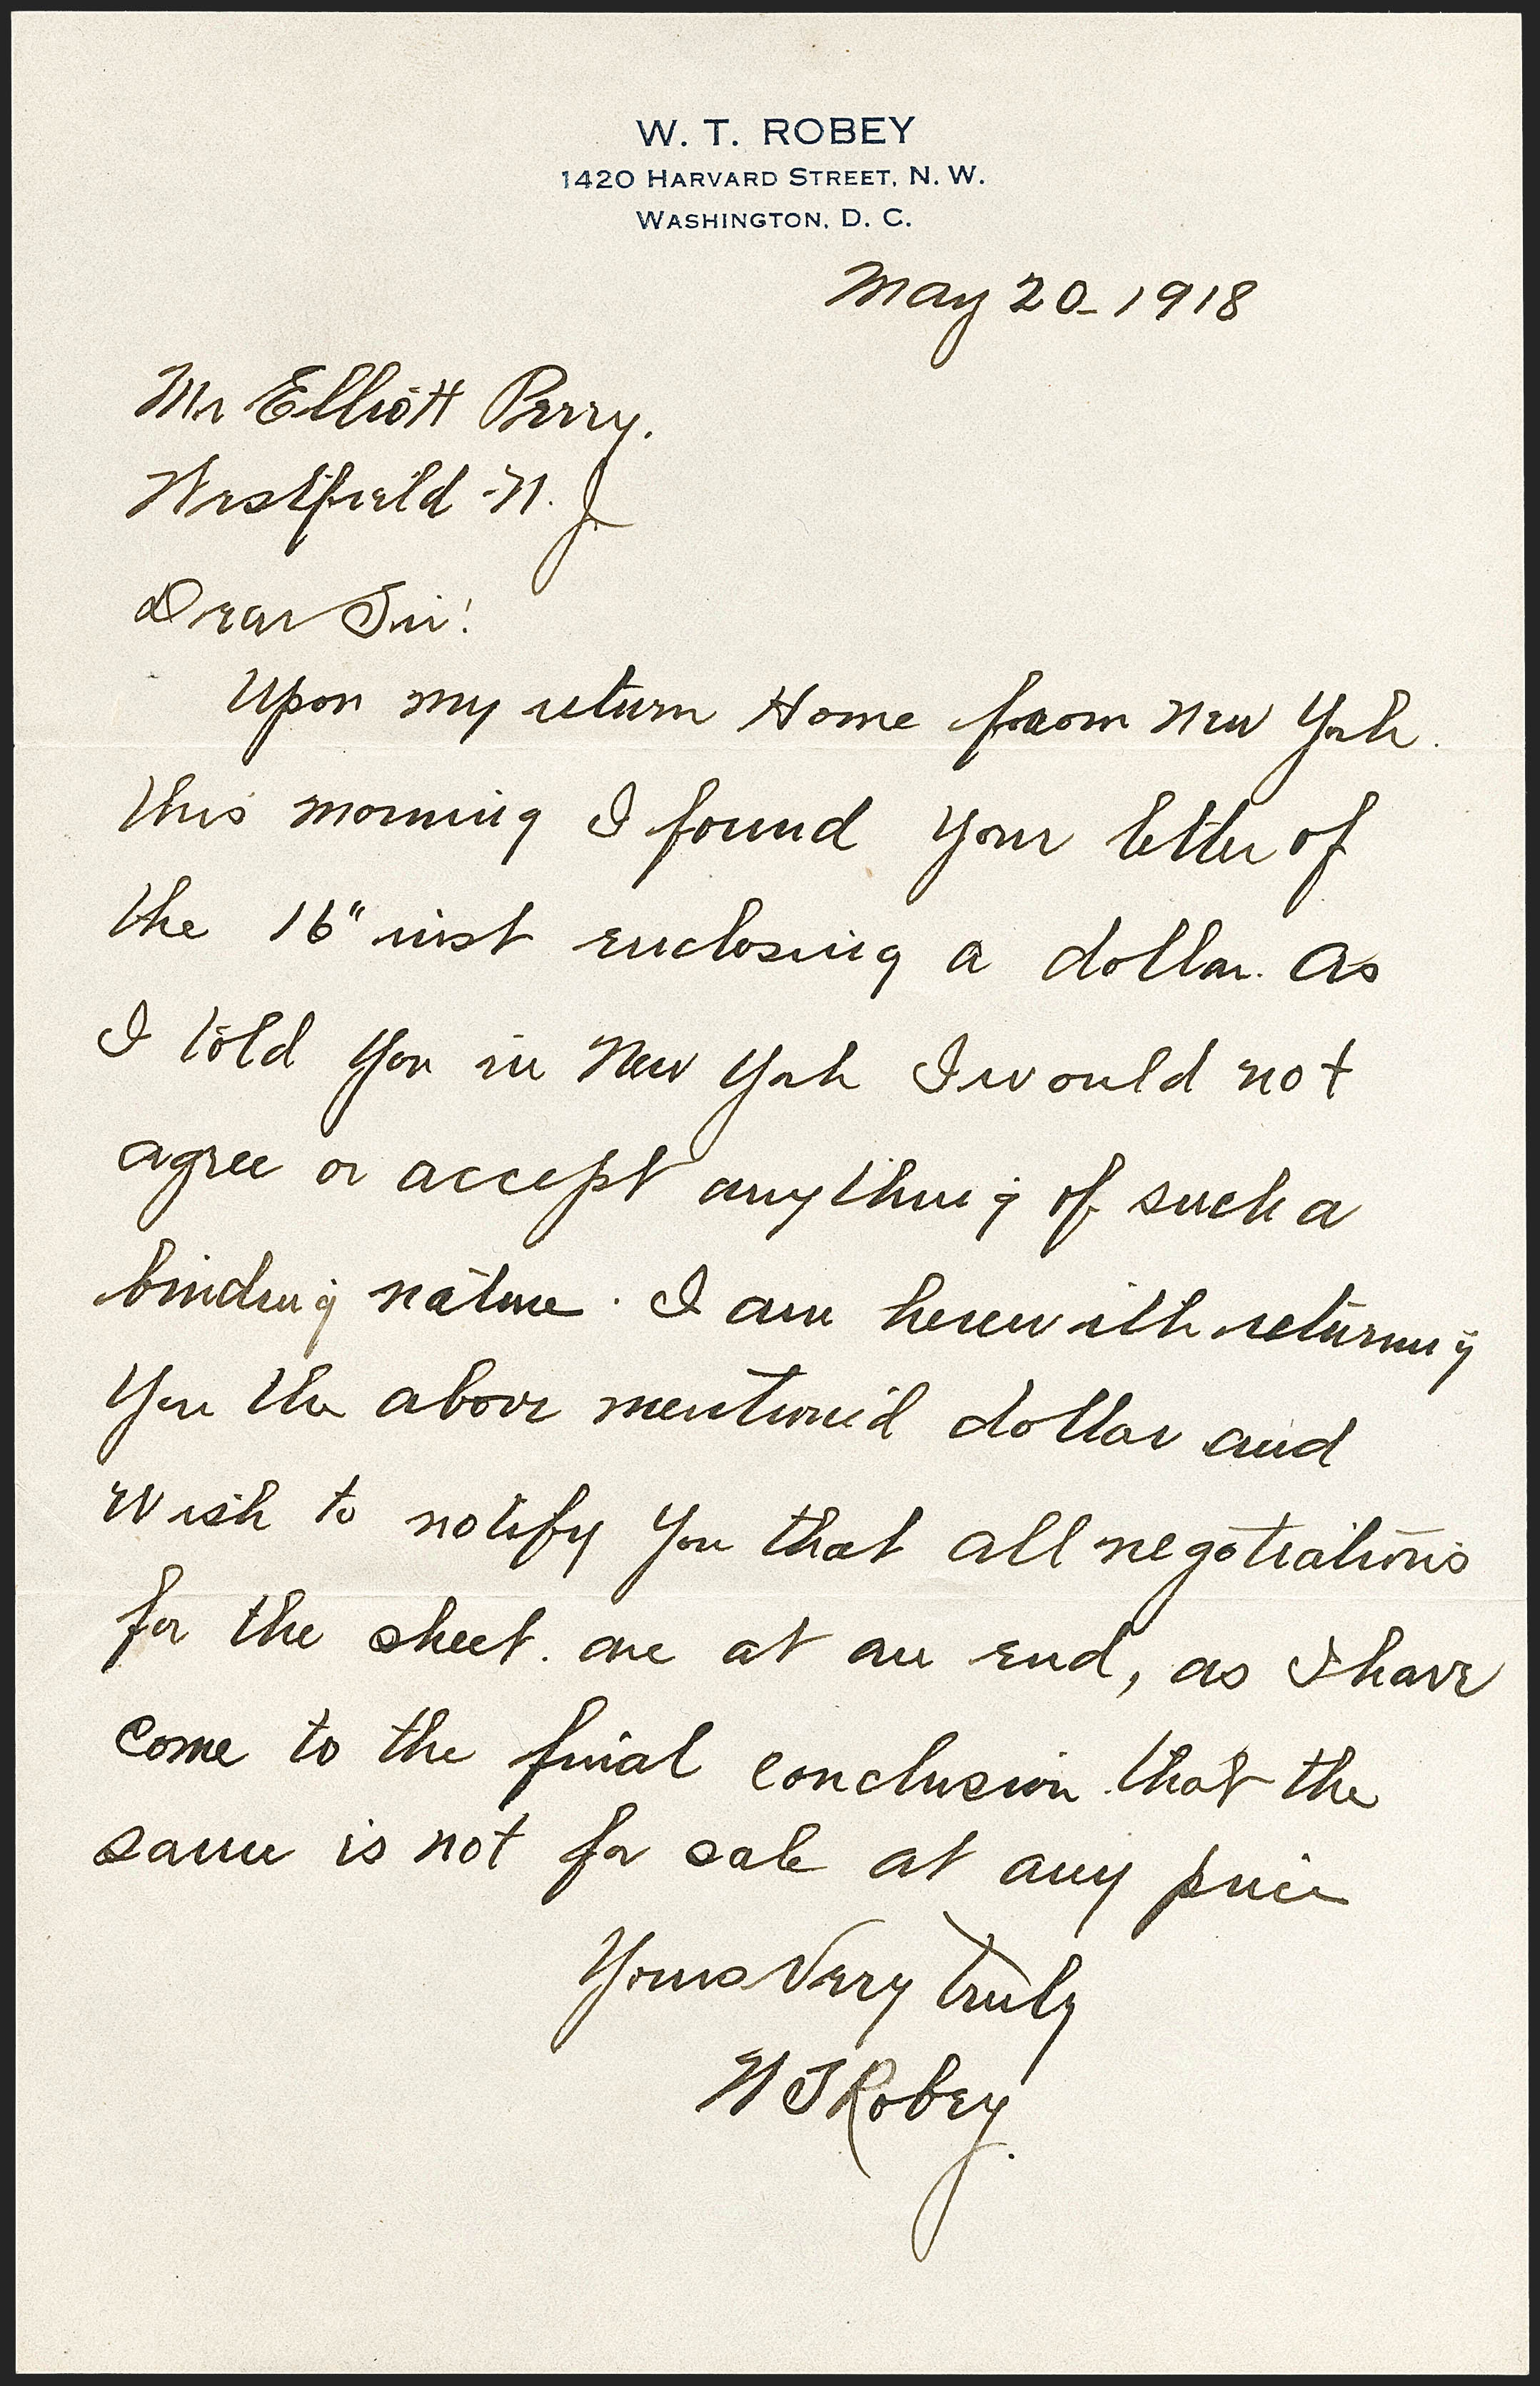 W. T. ROBEY
1420 HARVARD STREET, N. W.
WASHINGTON, D. C.
May 20_ 1918
Mr Elliott Perry.
Westfield - N. J.
Dear Sir:
Upon my return Home from New York.
this morning I found your letter of
the 16" inst enclosing a dollar. As
I told you in New York I would not
agree or accept anything of such a
binding nature. I am herewith returning
you the above mention'd dollar and
wish to notify you that all negotiations
for the sheet. are at an end, as I have
come to the final conclusion that the
same is not for sale at any price
Yours Very truly
W T Robey.